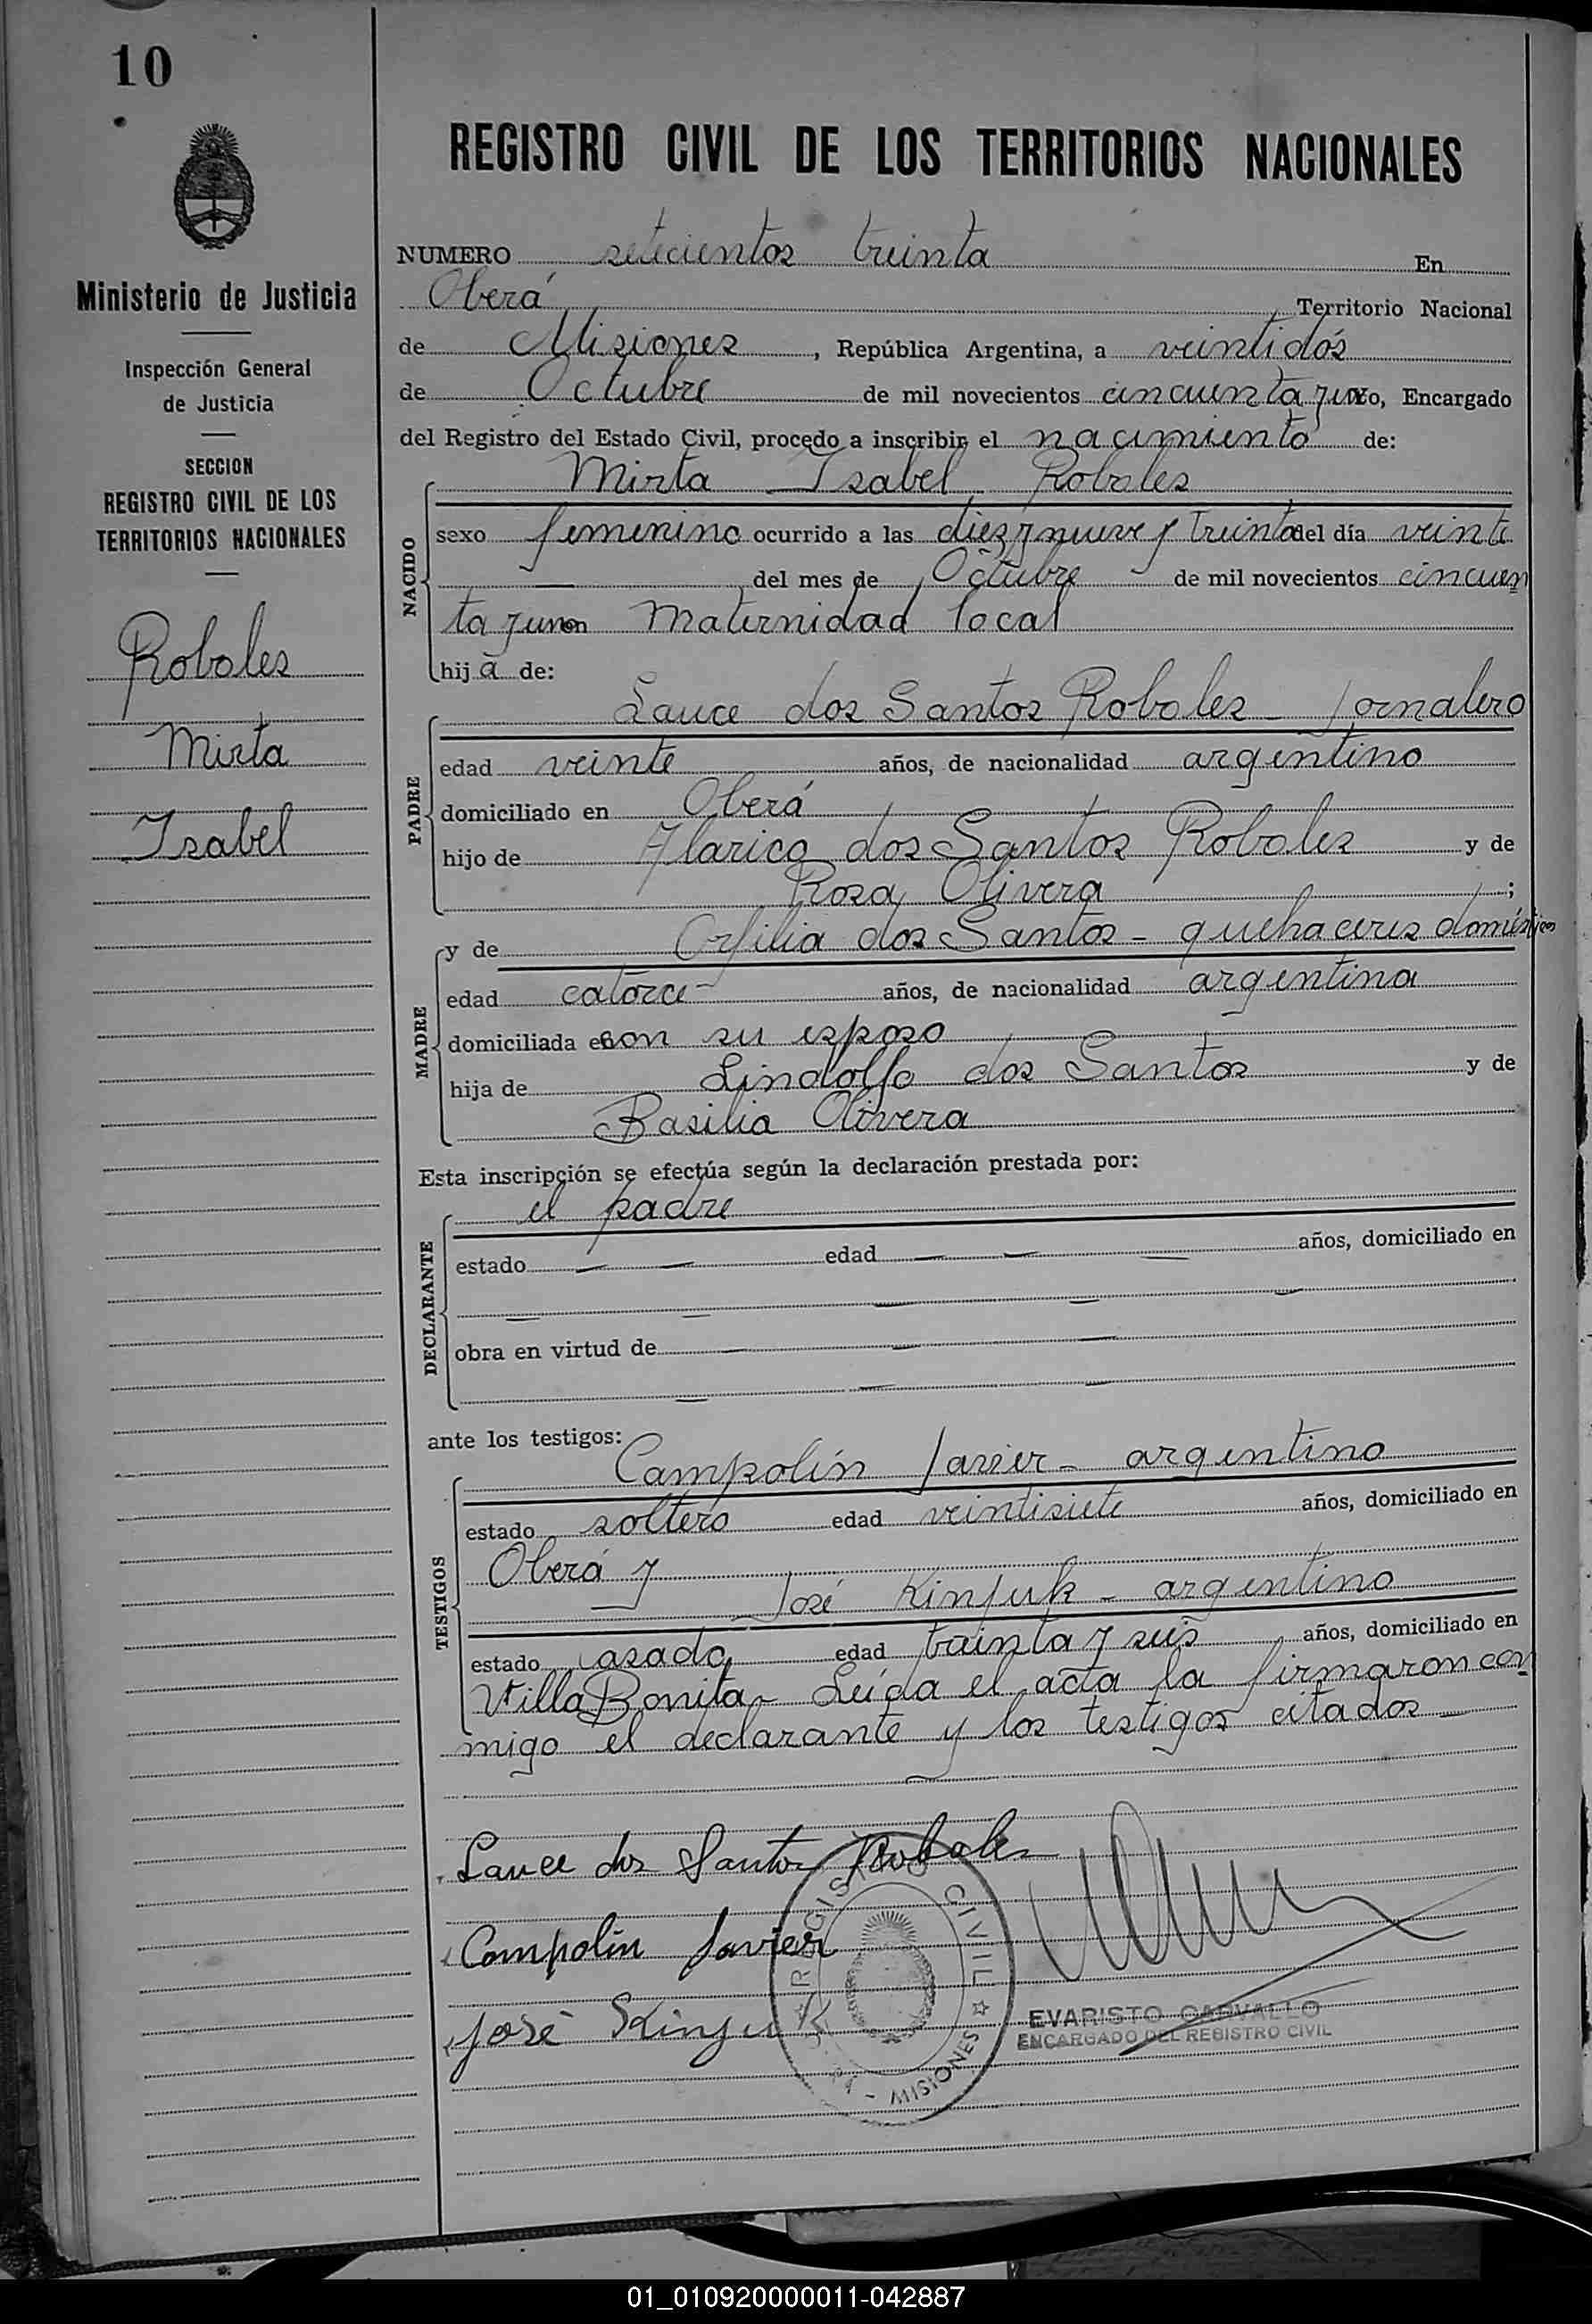 10
Ministerio de Justicia
Inspección General
de Justicia
SECCION
REGISTRO CIVIL DE LOS
TERRITORIOS NACIONALES
Robales
Mirta
Isabel
REGISTRO CIVIL DE LOS TERRITORIOS NACIONALES
NUMERO setecientos treinta En
Oberá, Territorio Nacional
de Misiones, República Argentina, a veintidós
de Octubre de mil novecientos cincuenta y uno, Encargado
del Registro del Estado Civil, procedo a inscribir el nacimiento de:
NACIDO
Mirta Isabel Robales
sexo femenino ocurrido a las diez y nueve y treinta del día veinte
— del mes de Octubre de mil novecientos cincuen
ta y uno en Maternidad local
hija de:
PADRE
Lauce dos Santos Robales - jornalero
edad veinte años, de nacionalidad argentino
domiciliado en Oberá
hijo de Alarico dos Santos Robales y de
Rosa Olivera;
MADRE
y de Orfilia dos Santos - quehaceres domésticos
edad catorce años, de nacionalidad argentina
domiciliada con su esposo
hija de Lindolfo dos Santos y de
Basilia Olivera
Esta inscripción se efectúa según la declaración prestada por:
DECLARANTE
el padre
estado — — edad — — — años, domiciliado en
— — — — —
obra en virtud de — — —
— — —
ante los testigos:
TESTIGOS
Campolín Javier - argentino
estado soltero edad veintisiete años, domiciliado en
Oberá y
José Kinjuk - argentino
estado casado edad treinta y seis años, domiciliado en
Villa Bonita - Leída el acta la firmaron con
migo el declarante y los testigos citados —
Lauce dos Santos Robales
Campolín Javier
José Kinjuk
REGISTRO CIVIL
MISIONES
EVARISTO CARVALLO
ENCARGADO DEL REGISTRO CIVIL
01_010920000011-042887